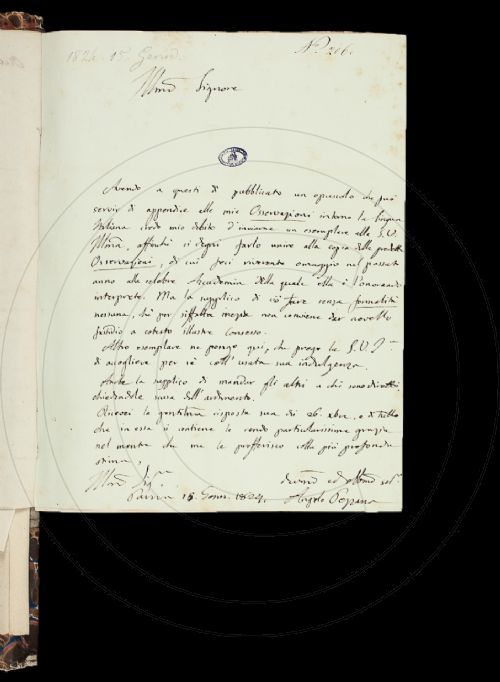 1824. 15. Genn.
N.º 216.
Illmo Signore
Avendo a questi dì pubblicato un opuscolo che può
servir di appendice alle mie Osservazioni intorno la lingua
Italiana credo mio debito d'inviarne un esemplare alla S.V.
Illma, affinchè si degni farlo unire alla copia delle predette
Osservazioni, di cui feci riverente omaggio nel passato
anno alla celebre Accademia della quale ella è l'onorando
interprete. Ma la supplico di ciò fare senza formalità
nessuna, chè per siffatta inezia non conviene dar novello
fastidio a cotesto illustre Consesso.
Altro esemplare ne porgo qui, che prego la S.V.
di accogliere per sè coll'usata sua indulgenza.
Anche la supplico di mandar gli altri a chi sono diretti
chiedendole scusa dell'ardimento.
Ricevei la gentilma risposta sua dei 26. xbre, e di tutto
che in essa si contiene le rendo particolarissime grazie
nel mentre che me le profferisco colla più profonda
stima,
Illmo Sig.re
Parma 15 Genn. 1824.
ed obbmo
Angelo Pezzana